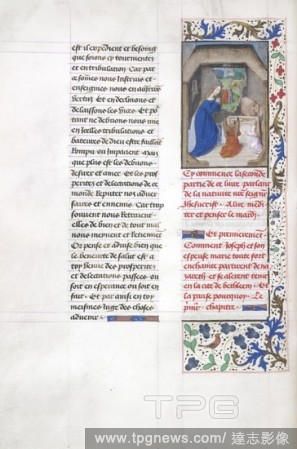 est il expedient et besoing
que soions cy tourmentez
et en tribulation Car par
ce sommes nous instruis et
enseignes nous en
vertus Et en declinons et
delaissons les vices Et
tant ne debuons nous mie
en icelles tribulations et
bateures de dieu estre faillis
rompus ou impaciens Mais
que plus est les debuons
desirer et amer Et les pros
peritez et delectations de ce
monde reputer nos adver
saires et ennemie Car trop
souvent nous retraient
elles de bien et de tout mal
nous mennent et
Or pense et advise bien que
le benevrete de salut est a
toy venue des prosperites
et delectations passees ou
soit en esperance ou soit en
fait Et par ainsy en toy
mesmes juge des choses
advenir
Cy commence la seconde
partie de ce livre parlant
de la nativite nostre seignr
Jhesucrist A lire medi
ter et penser le mardi
Et premierement
Comment Joseph et son
espeuse marie toute fort
enchainte partirent de na
zareth et se alerent tenir
en la cite de bethleem Et
la cause pourquoy Le
chapitre
TPG
www.tpgnews.com / 達志影像